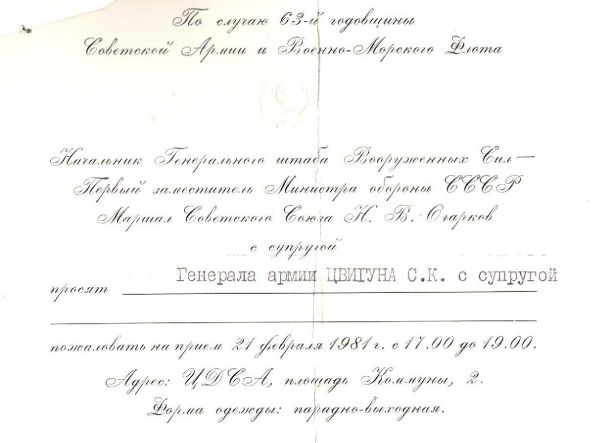 По случаю 63-й годовщины
Советской Армии и Военно-Морского Флота
Начальник Генерального штаба Вооруженных Сил—
Первый заместитель Министра обороны СССР
Маршал Советского Союза Н. В. Огарков
с супругой
просят Генерала армии ЦВИГУНА С.К. с супругой
пожаловать на прием 21 февраля 1981 г. с 17.00 до 19.00.
Адрес: ЦДСА, площадь Коммуны, 2.
Форма одежды: парадно-выходная.